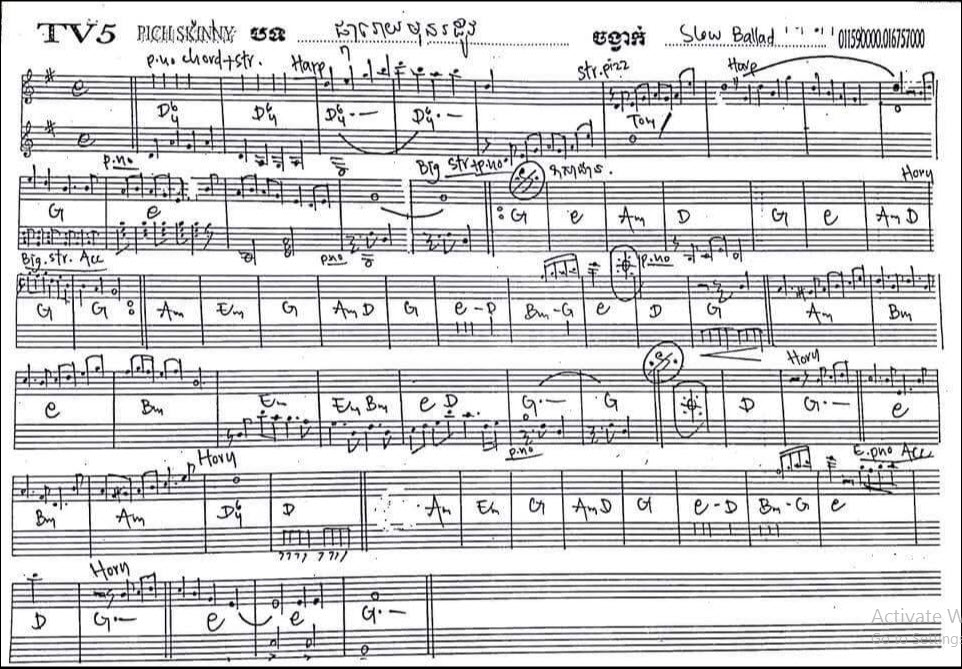 TV5 PICH SKINNY បទ ជាអោយមុនរដូវ ចង្វាក់ Slow Ballad 011590000.016757000
p.no chord+str. Harp Str.pizz Harp
D6/4 D6/4 D6/4.— D6/4.— Tom
p.no Big str+p.no Horn
G e G e Am D G e Am D
Big.str. Acc p.no p.no
G G Am Em G Am D G e - D Bm - G e D G Am Bm
Horn
e Bm Em Em Bm e D G.— G D G.— e
p.no
Horn E.pno Acc
Bm Am D6/4 D Am Em G Am D G e - D Bm - G e
Horn
D G.— e e G.—
Activate W
Go to Setting